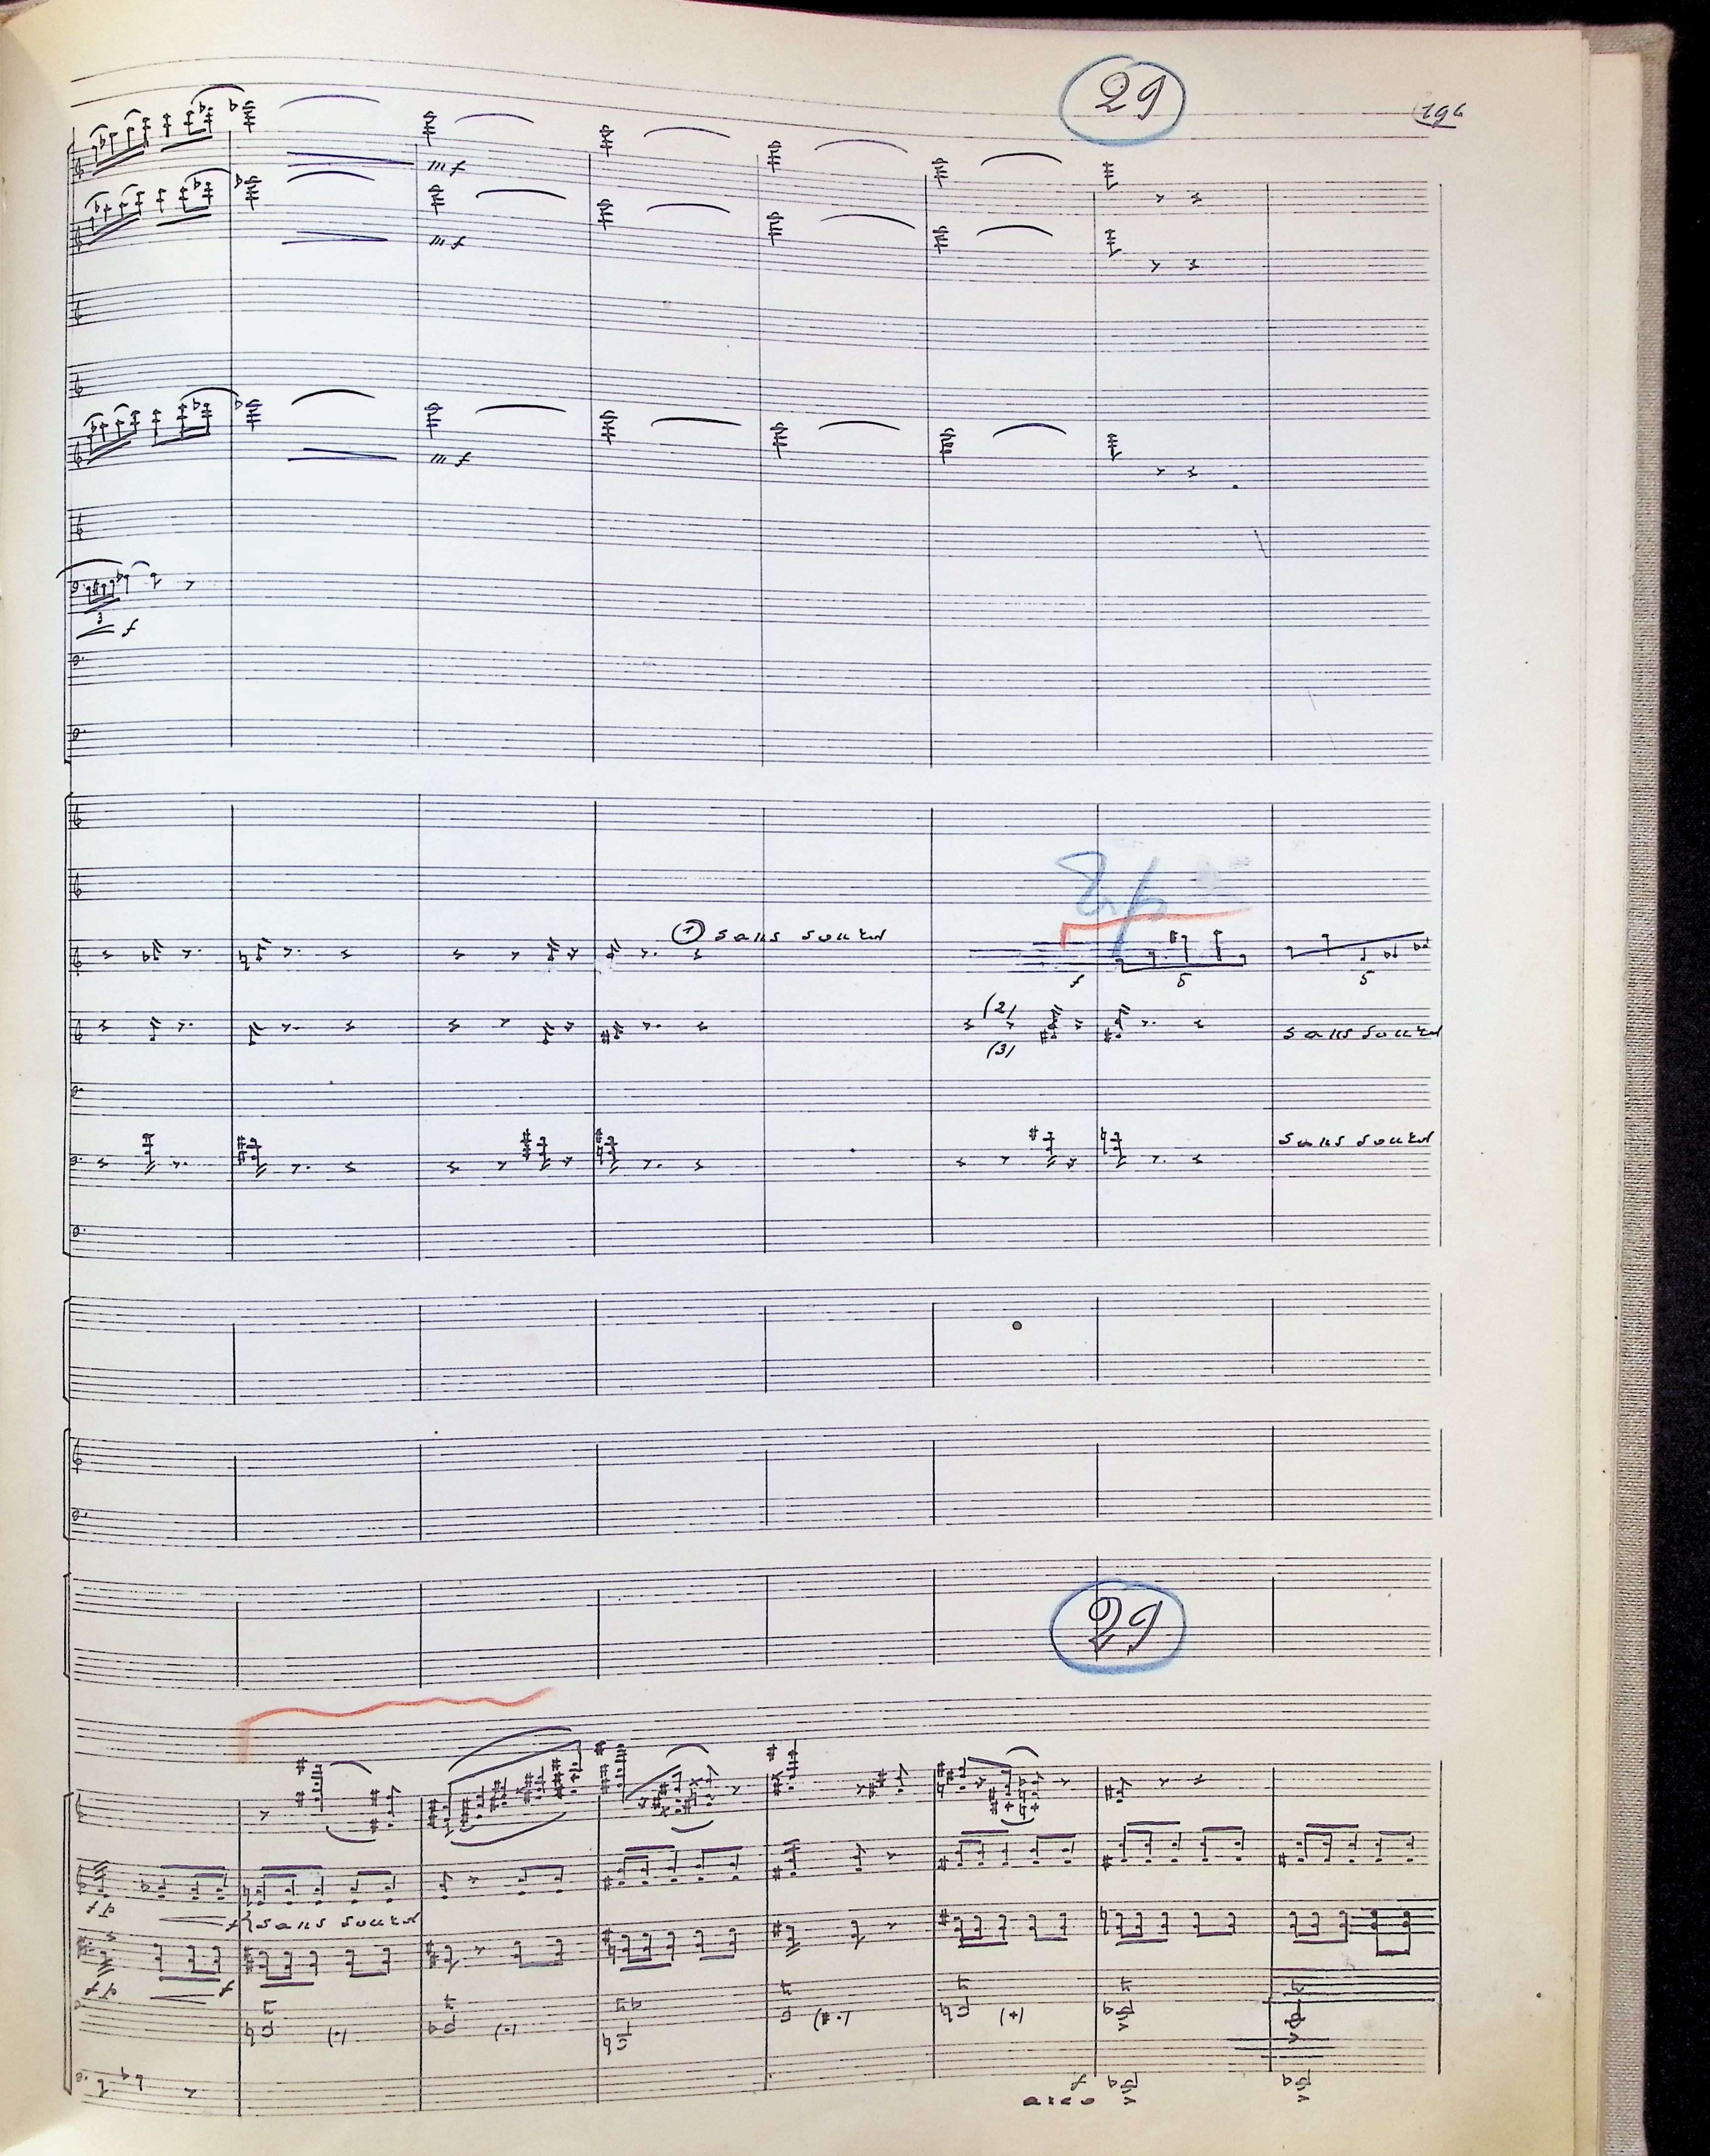 29
mf
mf
mf
3
f
① sans sourd
f
5
5
(2)
(3)
sans sourd
sans sourd
29
f
sans sourd
f
f
arco